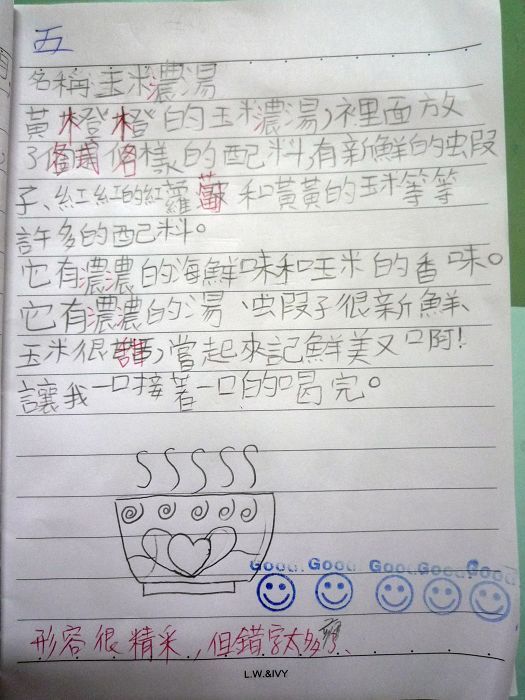 五
名稱:玉米濃湯
黃橙橙的玉米濃湯,裡面放
了各式各樣的配料,有新鮮的蝦
子、紅紅的紅蘿蔔和黃黃的玉米等等
許多的配料。
它有濃濃的海鮮味和玉米的香味。
它有濃濃的湯、蝦子很新鮮、
玉米很甜,當起來記鮮美又口阿!
讓我一口接著一口的喝完。
Good Good Good Good Good
形容很精采,但錯字太多
L.W.&IVY